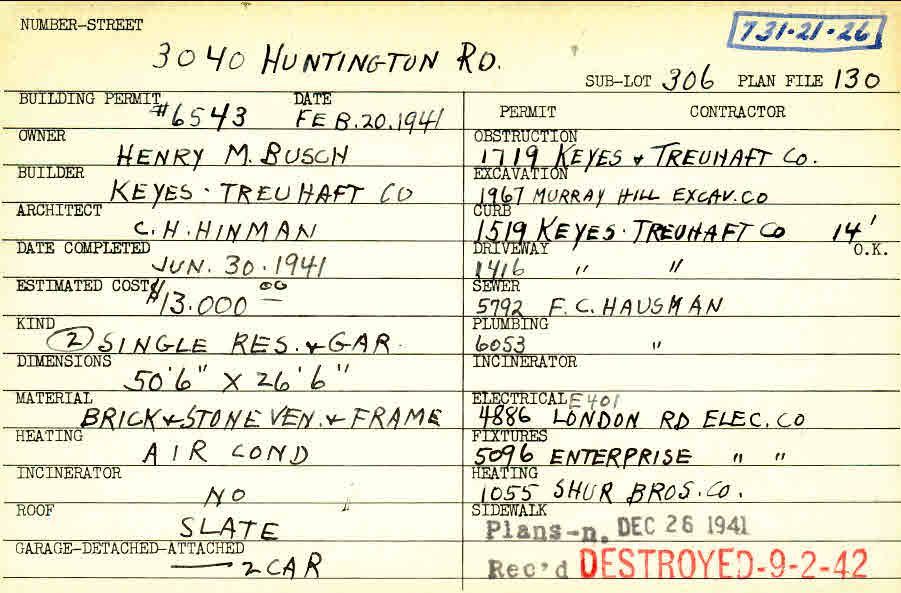 NUMBER-STREET
731-21-26
3040 HUNTINGTON RD.
SUB-LOT 306 PLAN FILE 130
BUILDING PERMIT #6543 DATE FEB.20.1941
OWNER
HENRY M. BUSCH
BUILDER
KEYES-TREUHAFT CO
ARCHITECT
C.H.HINMAN
DATE COMPLETED
JUN. 30.1941
ESTIMATED COST
$13.000 00
KIND
(2) SINGLE RES. & GAR.
DIMENSIONS
50'6" X 26'6"
MATERIAL
BRICK & STONE VEN. & FRAME
HEATING
AIR COND
INCINERATOR
NO
ROOF
SLATE
GARAGE-DETACHED-ATTACHED
2 CAR
PERMIT CONTRACTOR
OBSTRUCTION
1719 KEYES & TREUHAFT CO.
EXCAVATION
1967 MURRAY HILL EXCAV. CO
CURB
1519 KEYES-TREUHAFT CO 14'
DRIVEWAY O.K.
1416 " "
SEWER
5792 F.C. HAUSMAN
PLUMBING
6053 "
INCINERATOR
ELECTRICAL E401
4886 LONDON RD ELEC. CO
FIXTURES
5096 ENTERPRISE " "
HEATING
1055 SHUR BROS. CO.
SIDEWALK
Plans-n. DEC 26 1941
Rec'd DESTROYED-9-2-42